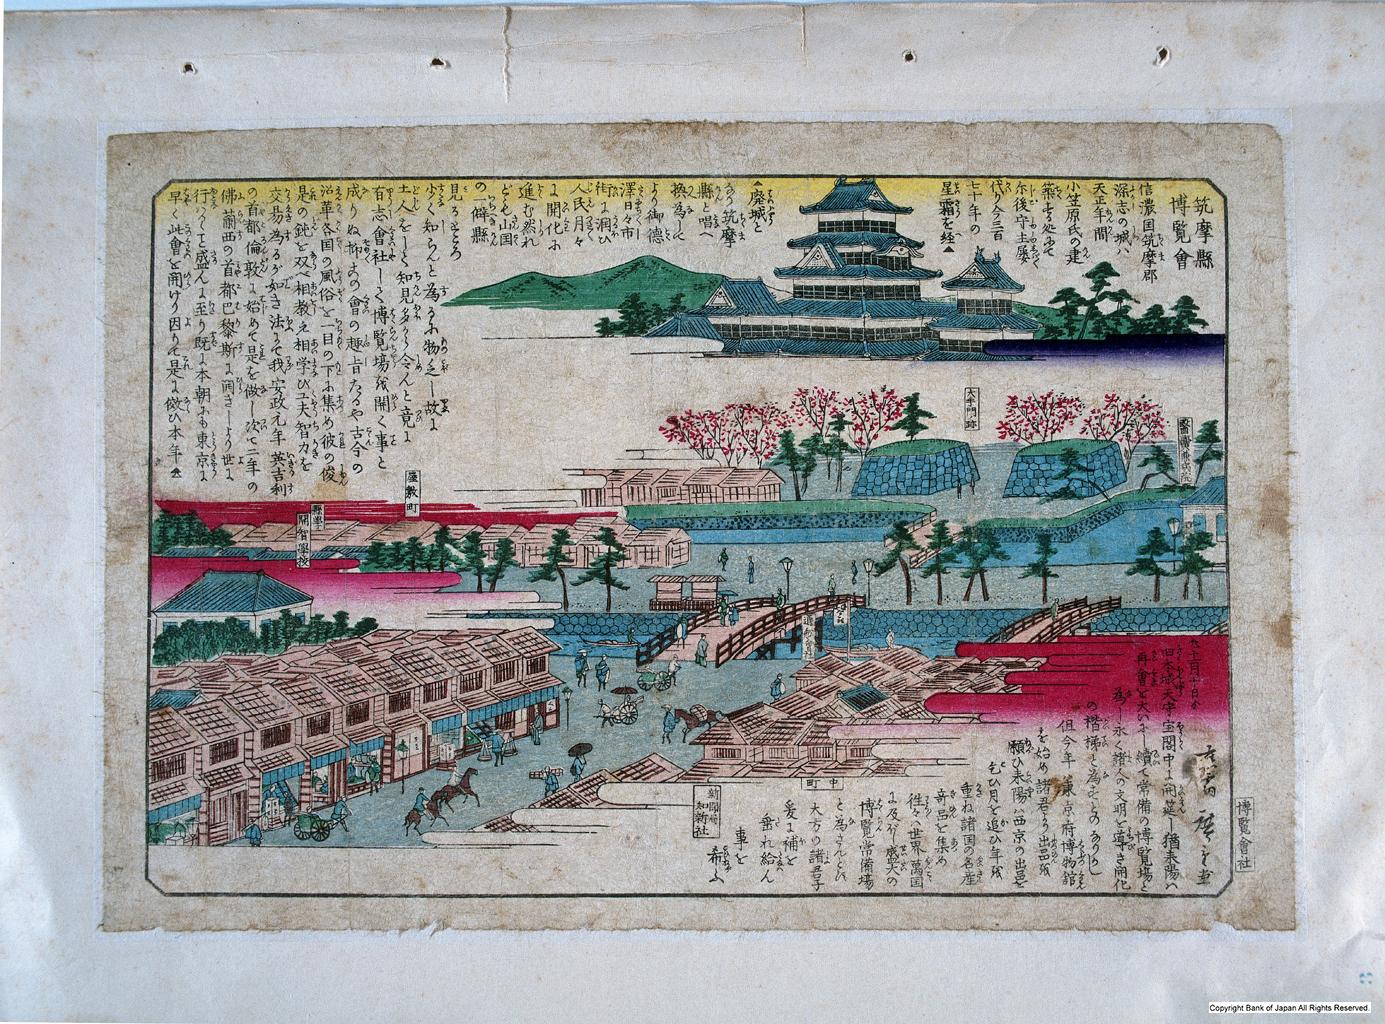 筑摩縣
博覧會
信濃国筑摩郡
深志の城ハ
天正年間
小笠原氏の建
築する処にて
尓後守土屡
代り今三百
七十年の
星霜を経▲
▲廃城と
なり筑摩
縣と唱へ
換為して
より御徳
澤日々市
街に潤ひ
人民月々
に開化に
進む然れ
ども山国
の一僻縣
見るところ
少く知らんと為るに物乏し故に
土人をして知見多から令んと竟に
有志會社して博覧場を開く事と
成りぬ抑この會の趣旨たるや古今の
沿革各国の風俗を一目の下に集め彼の俊
是の鈍を双べ相教え相学び工夫智力を
交易為るが如き法にて我安政元年英吉利
の首都倫敦に始めて是を做し次で二年の
佛蘭西の首都巴黎斯に開きしより世に
行ハるゝと盛んに至り既に本朝にも東京に
早く此會を開けり因りて是に倣ひ本年▲
大手門跡
屋敷町
開智學校
中町
新聞縦
知新社
旧本城天守宝閣中に開莚し猶来陽ハ
再會を大いに續て常備の博覧場と
為し永く諸人の文明を導き開化
の楷梯と為すとのありかし
但今年ハ東京府博物館
を始め諸君より出品を
願ひ来陽ハ西京の出品を
乞ひ月を追ひ年を
重ね諸国の名産
奇品を集め
往々ハ世界萬国
に及ぶ盛大の
博覧常備場
と為さんとひ
大方の諸君子
爰に補を
垂れ給ん
事を
希ふ
博覧會社
Copyright Bank of Japan All Rights Reserved.